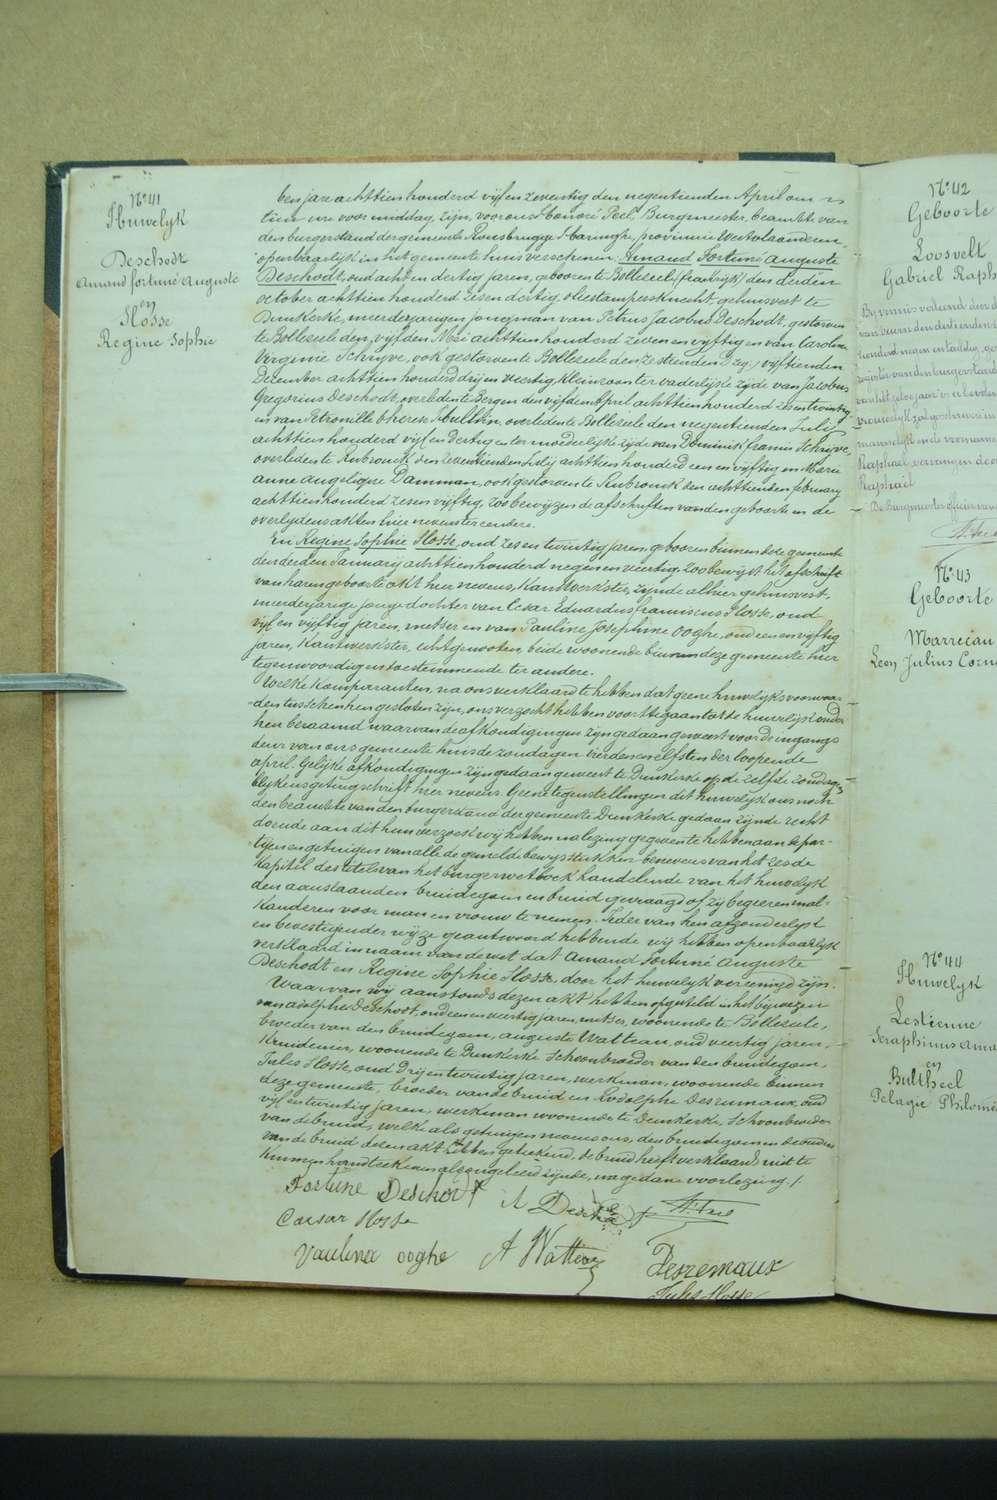 N° 41
Huwelyk
Deschodt
Amand fortuné Auguste
en
Hosse
Regine Sophie
ten jare achttien honderd vijf en zeventig den negentienden April om
tien ure voor middag, zijn, voor ons Honoré Peel, Burgmeester, beambte van
den burgerstand der gemeente Rousbrugge Haringhe, provincie Westvlaanderen,
openbaarlijk in het gemeente huis verschenen, Amand Fortuné Auguste
Deschodt, oud acht en dertig jaren, geboren te Bollezeele (frankrijk) den derden
october achttien honderd zes en dertig, oliestampersknecht, gehuisvest te
Dunkerke, meerderjarigen jongman van Petrus Jacobus Deschodt, gestorven
te Bollezeele den vijfden Mei achttien honderd zeven en vijftig en van Caroline
Virginie Schryve, ook gestorven te Bollezeele den zestienden (zeg) vijftienden
Dezember achttien honderd drij en veertig, kleinzoon ter vaderlijke zijde van Jacobus
Gregorius Deschodt, overleden te Bergen den vijfden April achttien honderd zes en twintig
en van Petronille Therese Boulthin, overleden te Bollezeele den negentienden Julij
achttien honderd vijf en dertig en ter moederlijke zijde van Dominik francis Schryve,
overleden te Rubrouck den zeventienden Julij achttien honderd een en vijftig en Marie
anne angelique Damman, ook gestorven te Rubrouck den achttienden february
achttien honderd zes en vijftig, zoo bewijzen de afschriften van den geboorte en de
overlijdensakten hier nevens ter eendere.
En Regine Sophie Hosse, oud zes en twintig jaren, geboren binnen deze gemeente
den derden January achttien honderd negen en veertig, zoo bewijst het afschrift
van haren geboorte akt hier nevens, Kantwerkster, zijnde alhier gehuisvest,
meerderjarige jonge dochter van Cesar Eduardus franciscus Hosse, oud
vijf en vijftig jaren, metser en van Pauline Josephine Ooghe, oud een en vijftig
jaren, Kantwerkster, echtgenooten, beide woonende binnen deze gemeente hier
tegenwoordig en toestemmende ter andere.
Welke komparanten, na ons verklaard te hebben dat geene huwelijksvoorwaar-
den tusschen hen gesloten zijn, ons verzocht hebben voort te gaan tot de huwelijk onder
hen beraamd waarvan de afkondigingen zijn gedaan geweest voor de ingangs
deur van ons gemeente huis de zondagen vierden en elfsten der loopende
april. Gelijke afkondigingen zijn gedaan geweest te Dunkerke op de zelfste zondags
blijkens getuigschrift hier nevens. Geene tegenstellingen dit huwelijk ons noch
den beambte van den burgerstand der gemeente Dunkerke gedaan zijnde recht
doende aan dit hun verzoek wij hebben na lezing gegeven te hebben aan de par-
tijen en getuigen van alle de gemelde bewijsstukken benevens van het zesde
Kapittel des titels van het burgerwetboek handelende van het huwelijk
den aanstaanden bruidegom en bruid gevraagd of zij begeeren mal-
kanderen voor man en vrouw te nemen. Ieder van hen afzonderlijk
en bevestigender wijze geantwoord hebbende wij hebben openbaarlijk
verklaard in naam van de wet dat Amand Fortuné Auguste
Deschodt en Regine Sophie Hosse, door het huwelijk vereenigd zijn.
Waar van wij aanstonds dezen akt hebben opgesteld in het bijwezen
van adolphe Deschodt, oud een en veertig jaren, metser, woonende te Bollezeele,
broeder van den bruidegom, auguste Watteau, oud veertig jaren,
Kruidenier, woonende te Dunkerke Schoonbroeder van den bruidegom,
Jules Hosse, oud drij en twintig jaren, werkman, woonende binnen
deze gemeente, broeder van de bruid en Rodolphe Desremaux, oud
vijf en twintig jaren, werkman woonende te Dunkerke, Schoonbroeder
van de bruid, welke als getuigen nevens ons, den bruidegom en de ouders
van de bruid dezen akt hebben geteekend, de bruid heeft verklaard niet te
kunnen handteekenen als ongeleerd zijnde, na gedane voorlezing.
Fortune Deschodt
A Deschodt
Caesar Hosse
Paulina ooghe
A Watteau
Desremaux
Jules Hosse
N° 42
Geboorte
Loosvelt
Gabriel Raph
Raphaël
N° 43
Geboorte
Marrecau
Leon Julius Corn
N° 44
Huwelyk
Lestienne
Seraphinus Ama
en
Bultheel
Pelagie Philom